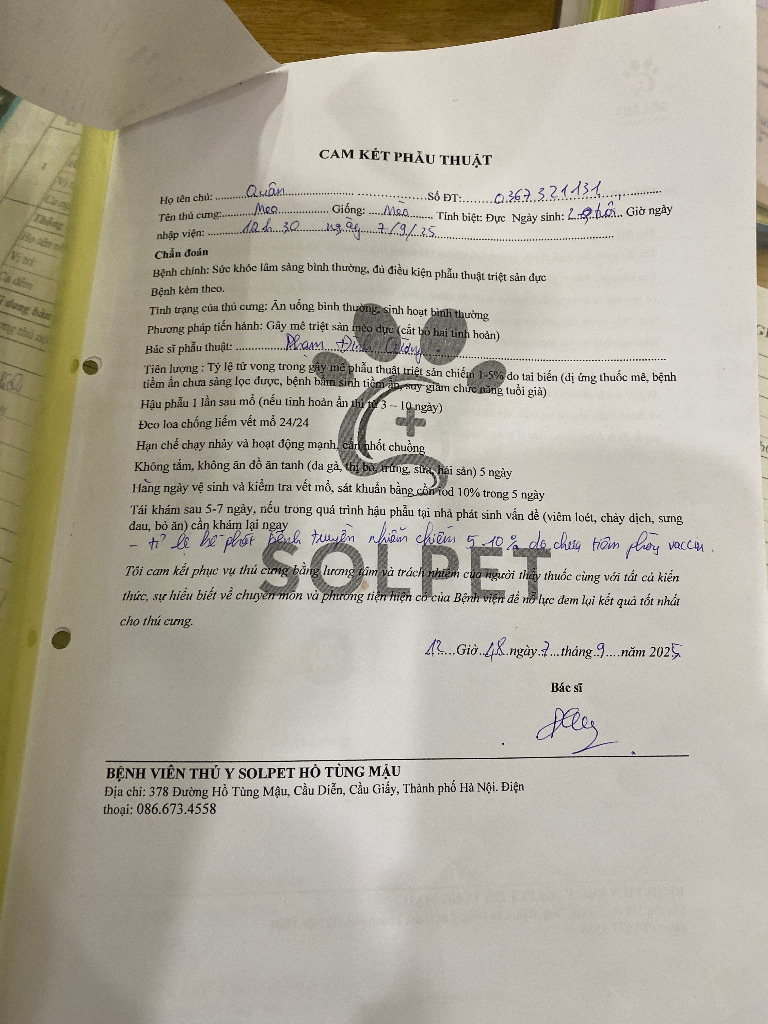 CAM KẾT PHẪU THUẬT
Họ tên chủ: Quân Số ĐT: 0367321131
Tên thú cưng: Mèo Giống: Mèo Tính biệt: Đực Ngày sinh: tuổi Giờ ngày
nhập viện: 12h 30 ngày 7/9/25
Chẩn đoán
Bệnh chính: Sức khỏe lâm sàng bình thường, đủ điều kiện phẫu thuật triệt sản đực
Bệnh kèm theo.
Tình trạng của thú cưng: Ăn uống bình thường, sinh hoạt bình thường
Phương pháp tiến hành: Gây mê triệt sản mèo đực (cắt bỏ hai tinh hoàn)
Bác sĩ phẫu thuật: Phạm Đình Cường
Tiên lượng : Tỷ lệ tử vong trong gây mê phẫu thuật triệt sản chiếm 1-5% do tai biến (dị ứng thuốc mê, bệnh
tiềm ẩn chưa sàng lọc được, bệnh bẩm sinh tiềm ẩn, suy giảm chức năng tuổi già)
Hậu phẫu 1 lần sau mổ (nếu tinh hoàn ẩn thì từ 3 – 10 ngày)
Đeo loa chống liếm vết mổ 24/24
Hạn chế chạy nhảy và hoạt động mạnh, cần nhốt chuồng
Không tắm, không ăn đồ ăn tanh (da gà, thị bò, trứng, sữa, hải sản) 5 ngày
Hàng ngày vệ sinh và kiểm tra vết mổ, sát khuẩn bằng cồn iod 10% trong 5 ngày
Tái khám sau 5-7 ngày, nếu trong quá trình hậu phẫu tại nhà phát sinh vấn đề (viêm loét, chảy dịch, sưng
đau, bỏ ăn) cần khám lại ngay
- tỉ lệ kế phát bệnh truyền nhiễm chiếm 5-10% do chưa tiêm phòng vaccin.
SOLPET
Tôi cam kết phục vụ thú cưng bằng lương tâm và trách nhiệm của người thầy thuốc cùng với tất cả kiến
thức, sự hiểu biết về chuyên môn và phương tiện hiện có của Bệnh viện để nỗ lực đem lại kết quả tốt nhất
cho thú cưng.
12 Giờ 48 ngày 7 tháng 9 năm 2025
Bác sĩ
BỆNH VIÊN THÚ Y SOLPET HỒ TÙNG MẬU
Địa chỉ: 378 Đường Hồ Tùng Mậu, Cầu Diễn, Cầu Giấy, Thành phố Hà Nội. Điện
thoại: 086.673.4558